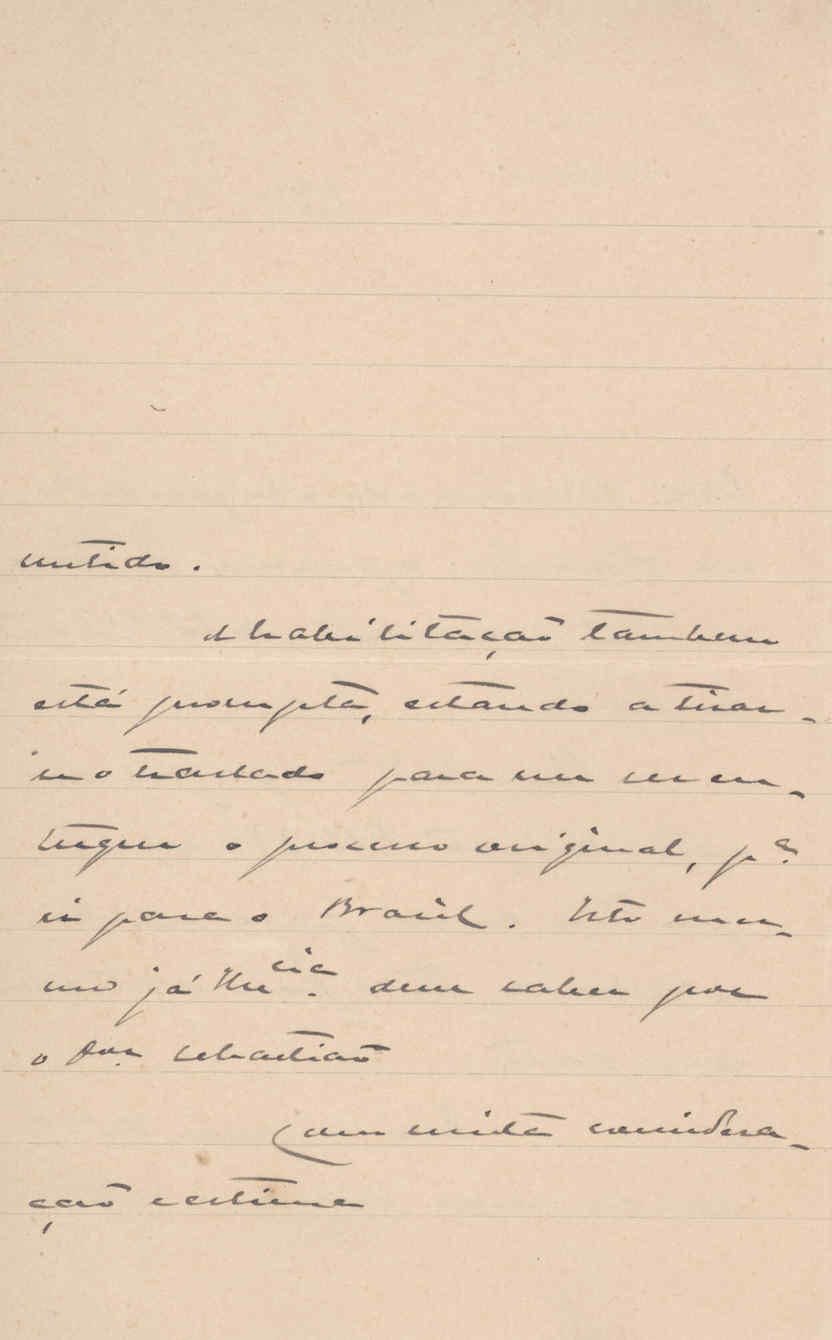 mitido.
A habilitação tambem
está prompta, estando a tirar-
se o traslado para me ser en-
tregue o processo original, pª
ir para o Brazil. Isto mes-
mo já V. Excia. deve saber por
o Snr. Sebastião
Com muita considera-
ção e estima